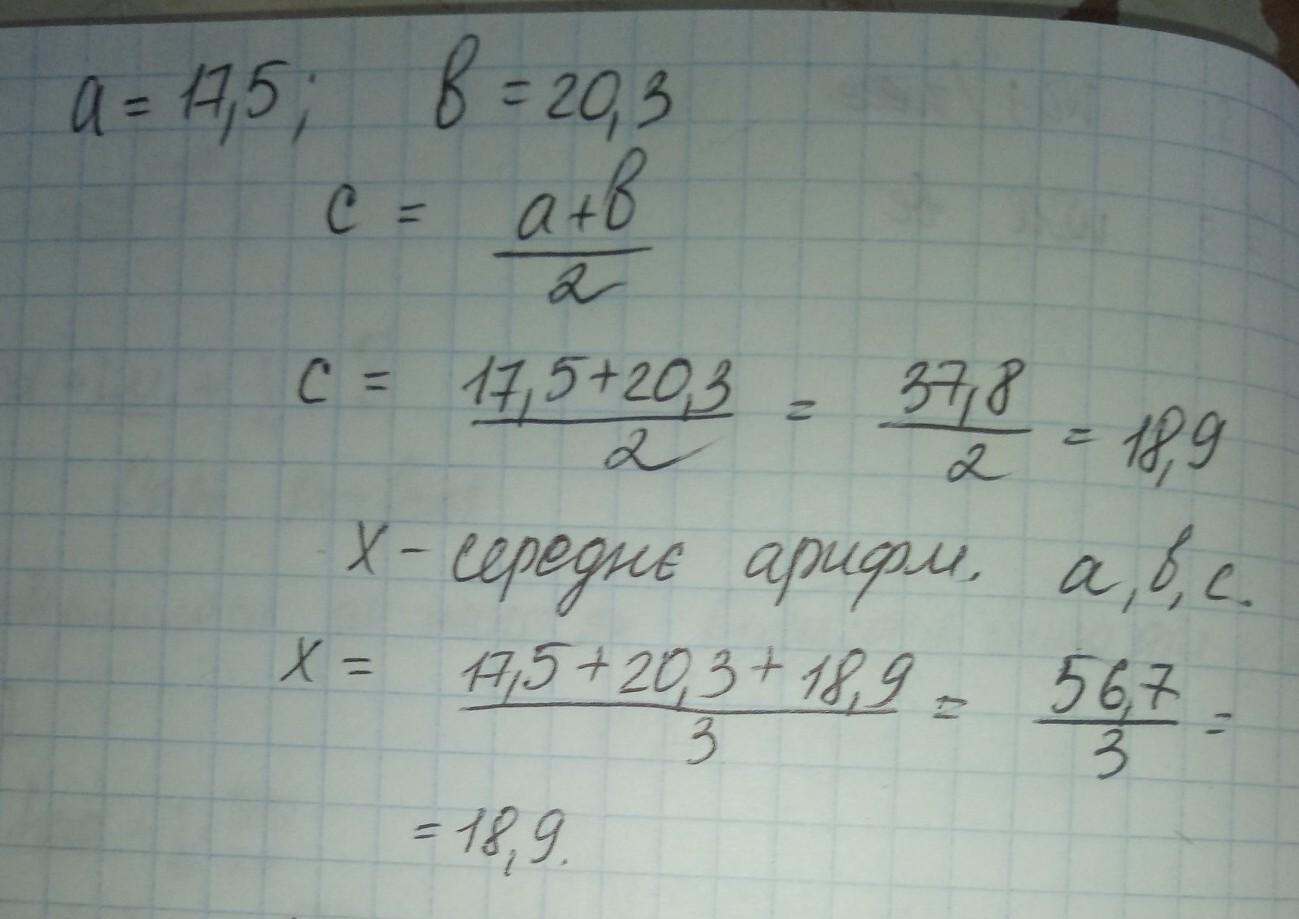 a = 17,5; в = 20,3
c = a+в / 2
c = 17,5+20,3 / 2 = 37,8 / 2 = 18,9
x - середнє арифм. a, в, c.
x = 17,5+20,3+18,9 / 3 = 56,7 / 3 =
= 18,9.